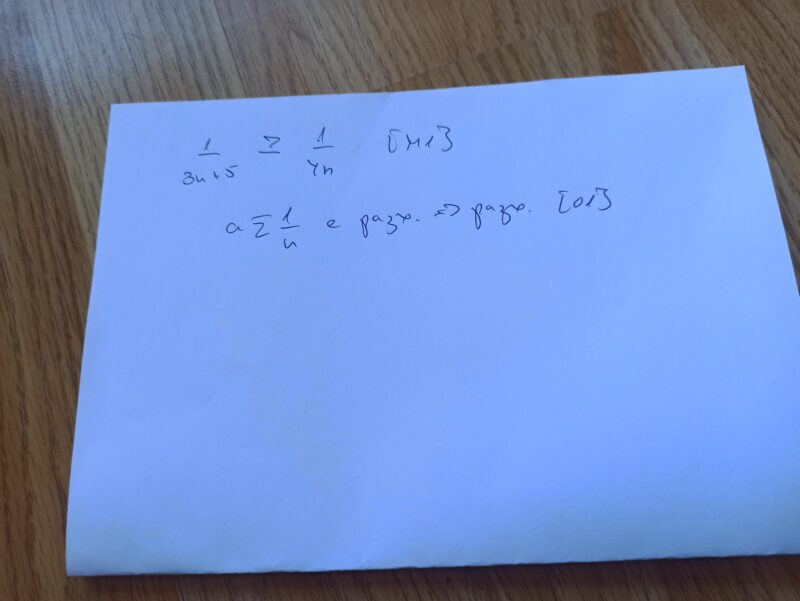 1/(3n+5) ≥ 1/(4n) [М1]
а Σ 1/n е разх. => разх. [О1]